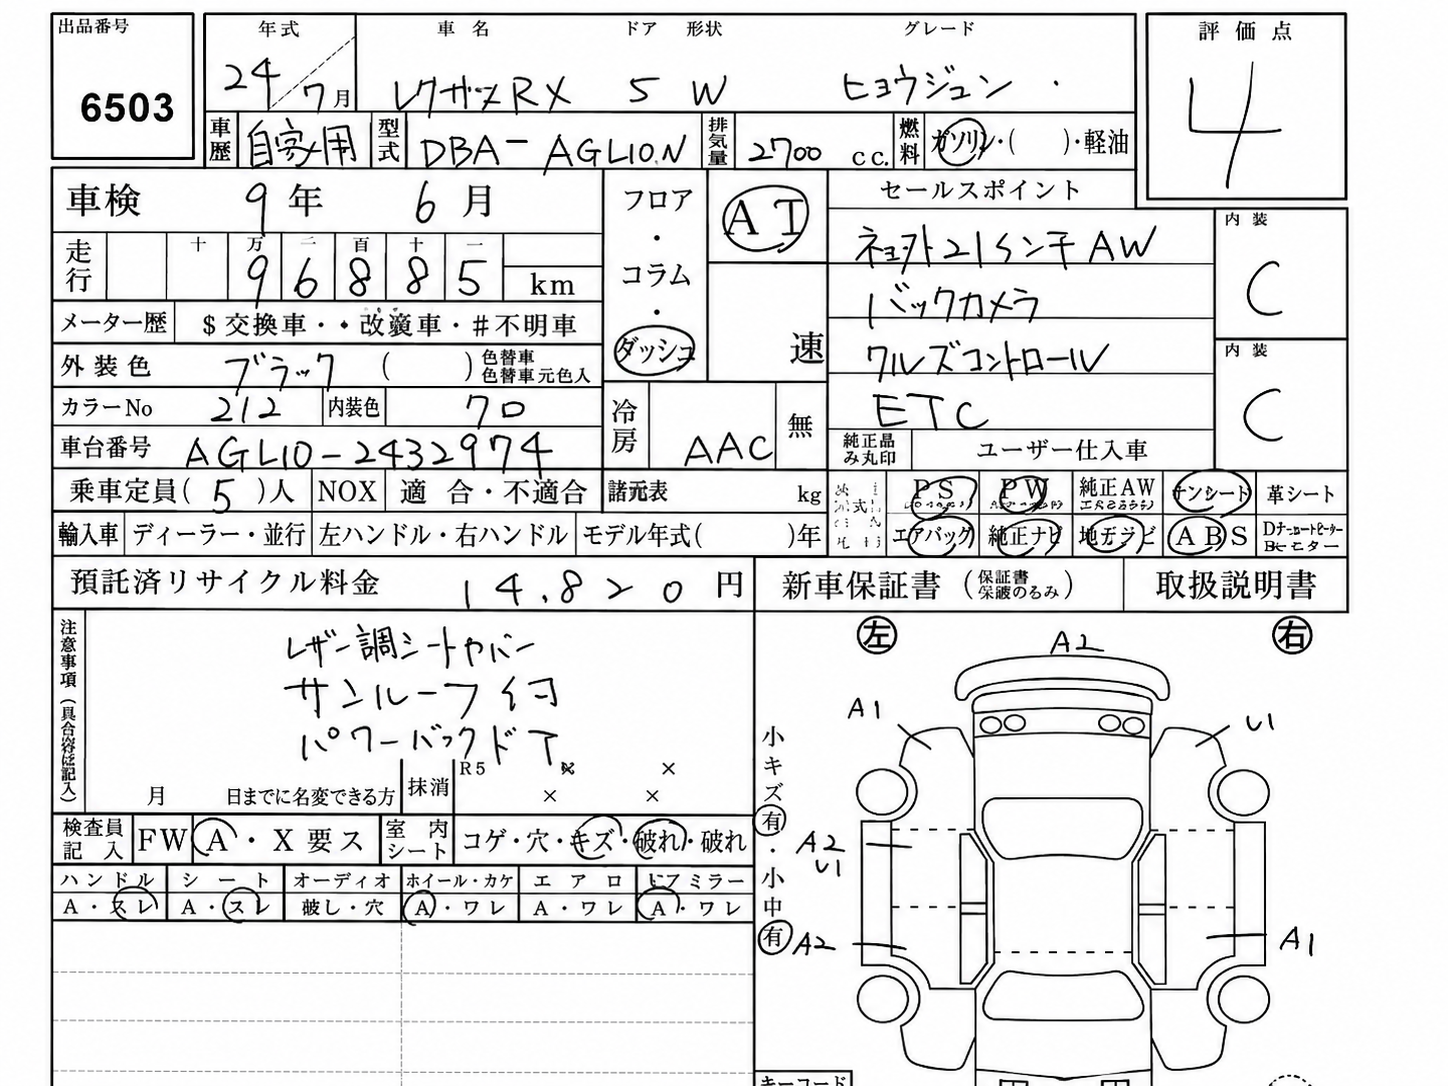 出品番号
6503
年式 車名 ドア 形状 グレード
24/7月 レクサスRX 5 W ヒョウジュン
評価点
4
車歴 自家用 型式 DBA-AGL10W 排気量 2700 cc. 燃料 ガソリン・( )・軽油
車検 9年 6月
フロア・コラム・ダッシュ
AT
速
セールスポイント
走行 十 万 百 十 一
9 6 8 8 5 km
バックカメラ
ETC
内装
C
内装
C
メーター歴 $交換車・ 改 車・#不明車
外装色 ブラック ( ) 色替車 色替車元色
カラーNo 212 内装色 クロ
車台番号 AGL10-2432974
冷房 AAC 無
純正品 み丸印 ユーザー仕入車
乗車定員(5)人 NOX 適合・不適合 諸元表 kg
PS PW 純正AW サンシート 革シート
輸入車 ディーラー・並行 左ハンドル・右ハンドル モデル年式( )年
エアバッグ 純正ナビ ABS
預託済リサイクル料金 14.820円
新車保証書 取扱説明書
注意事項
レザー調シートカバー
サンルーフ付
パワーバックドア
月 日までに名変できる方 抹消 R5 × × × ×
検査員記入 FW A・X要ス 室内シート コゲ・穴・キズ・破れ・破れ
ハンドル シート オーディオ ホイール・カケ エアロ ドアミラー
A・スレ A・スレ 破し・穴 A・ワレ A・ワレ A・ワレ
左 右
A2
A1 U1
小キズ有・小中有
A2
U1
A2 A1
キーコード